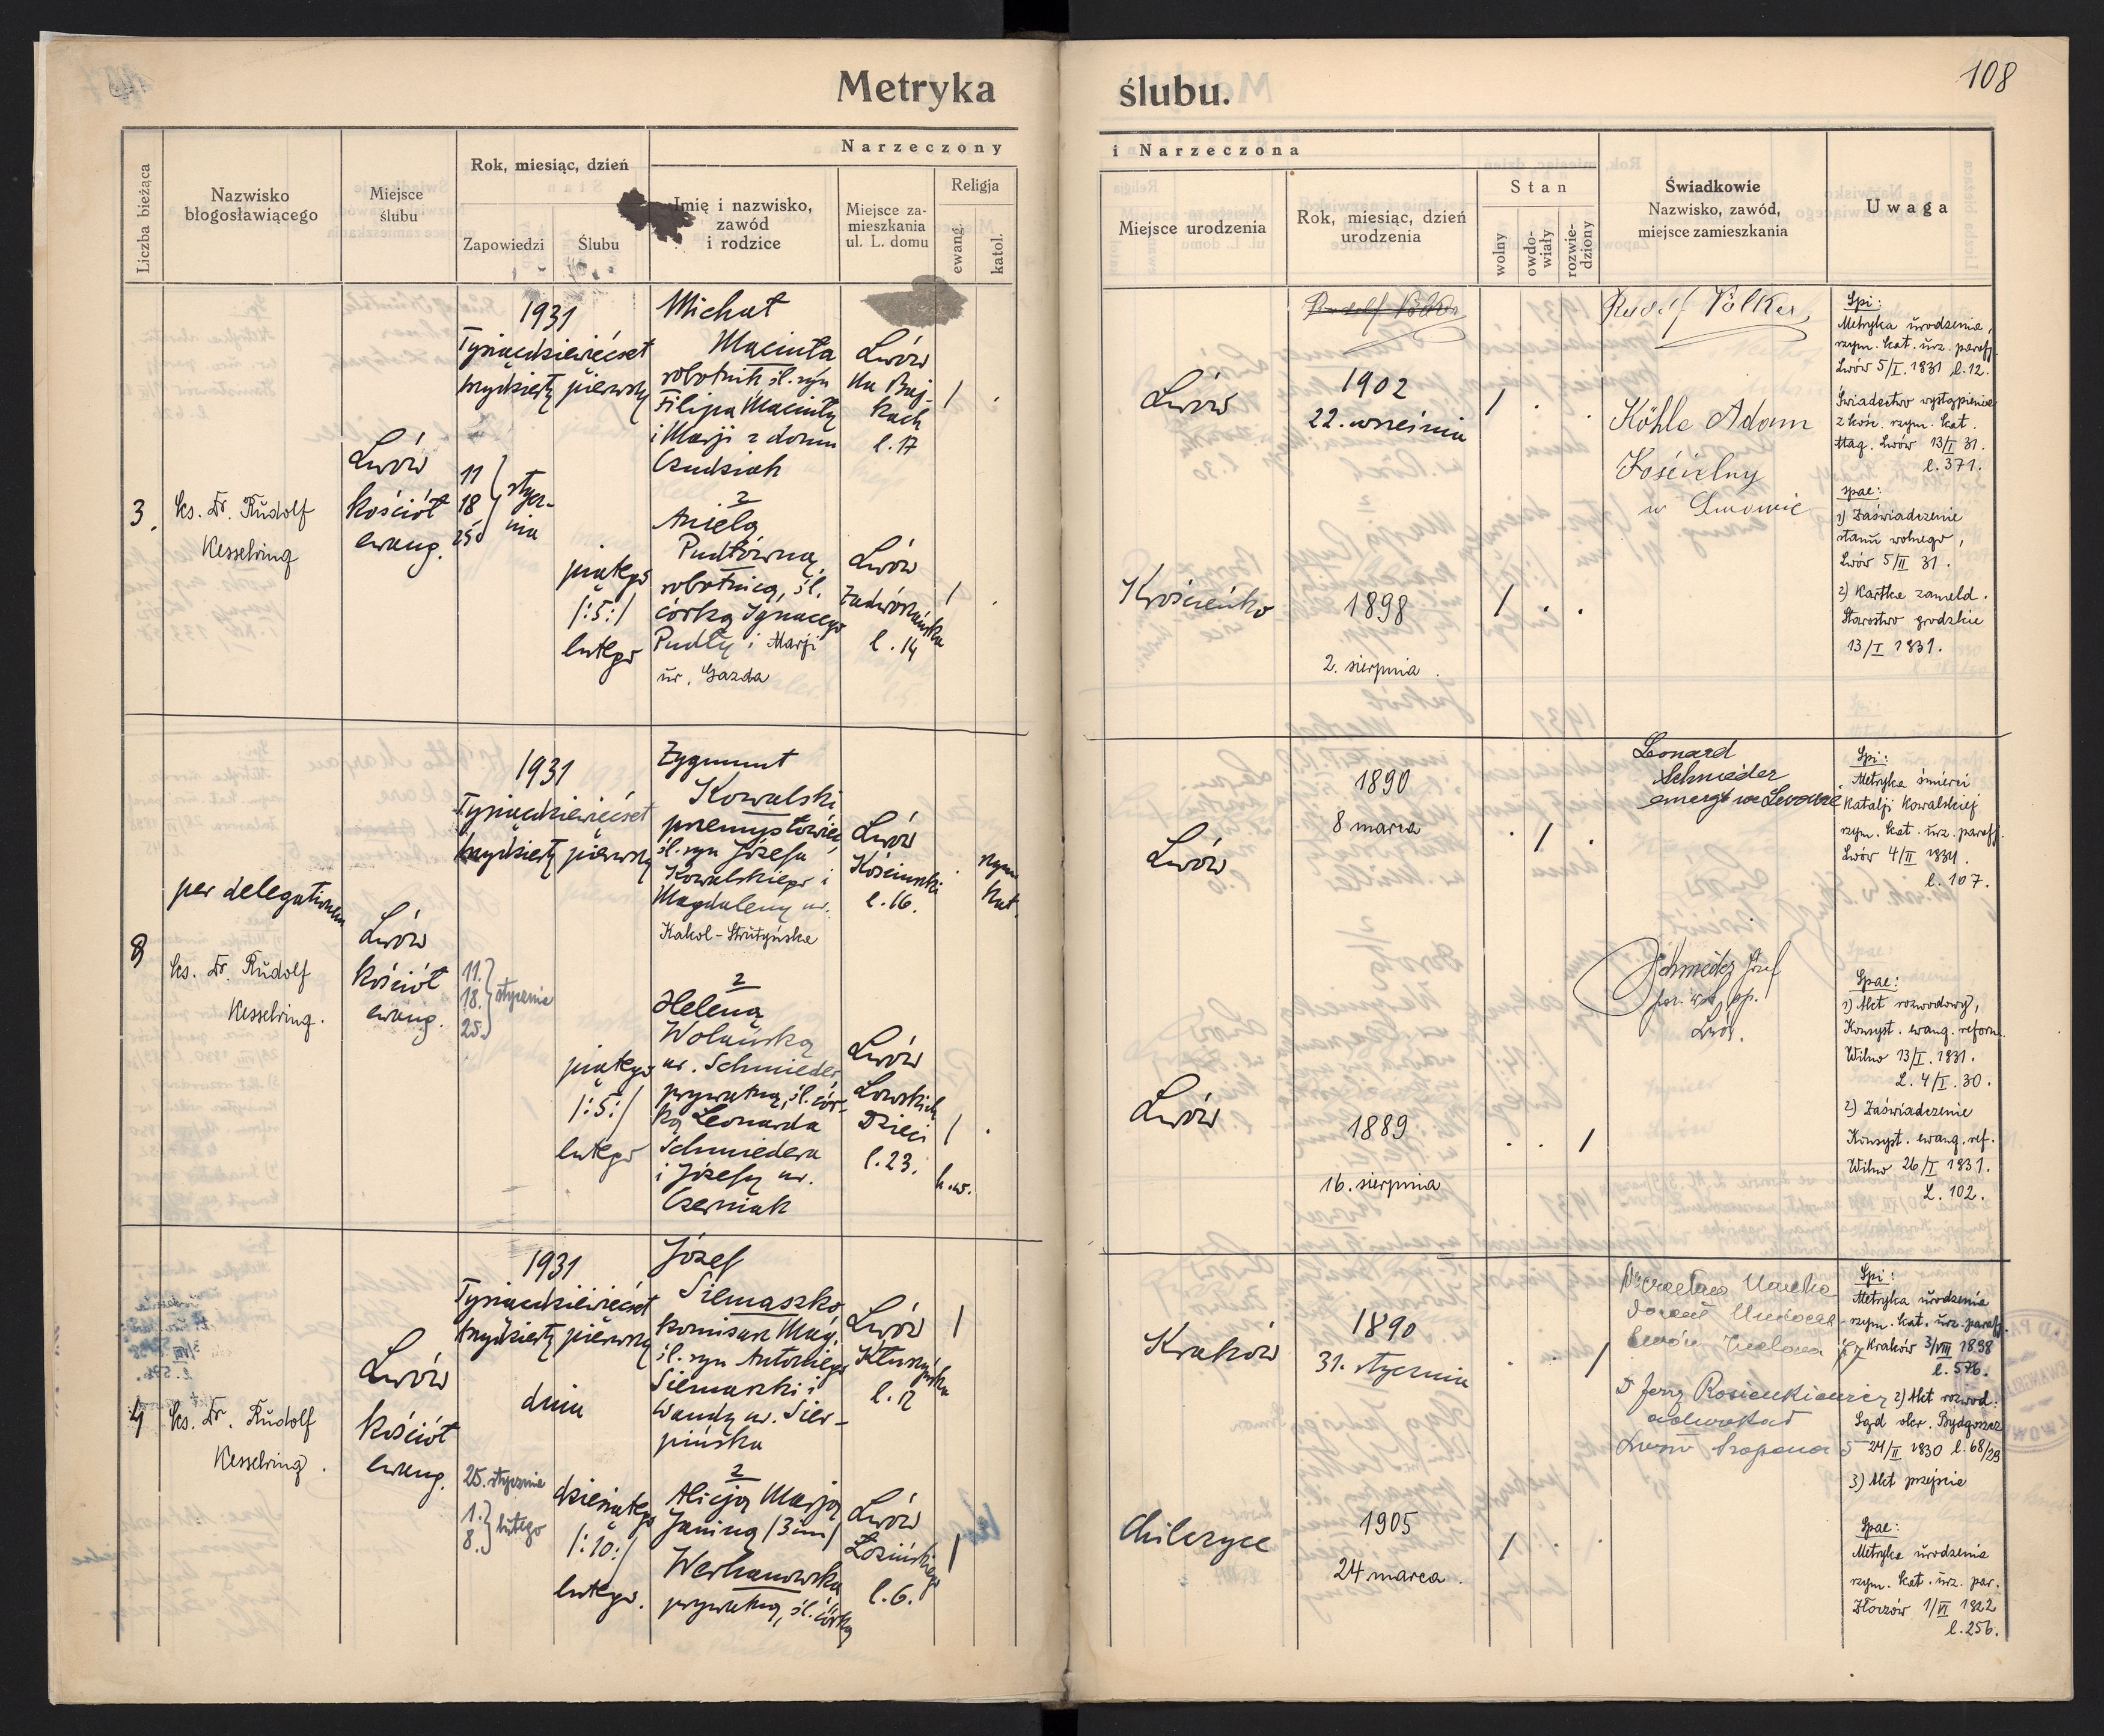 Metryka
ślubu.
108
Liczba bieżąca
Nazwisko
błogosławiącego
Miejsce
ślubu
Rok, miesiąc, dzień
Zapowiedzi
Ślubu
Narzeczony
Imię i nazwisko,
zawód
i rodzice
Miejsce za-
mieszkania
ul. L. domu
Religja
ewang.
katol.
i Narzeczona
Miejsce urodzenia
Rok, miesiąc, dzień
urodzenia
Stan
wolny
owdo-
wiały
rozwie-
dziony
Świadkowie
Nazwisko, zawód,
miejsce zamieszkania
Uwaga
3.
ks. Dr. Rudolf
Kesselring
Lwów
kościół
ewang.
1931
Tysiącdziewięćset
trzydziesty pierwszy
11
18
25
stycz-
nia
piątego
/:5:/
lutego
Michał
Maciuła
robotnik śl. syn
Filipa Maciuły
i Marji z domu
Czudziak
z
Anielą
Pudłówną,
robotnicą, śl.
córką Ignacego
Pudły i Marji
ur. Gazda
Lwów
Na Baj-
kach
l. 17
Lwów
Zadwórzańska
l. 14
Lwów
1902
22. września
Krościenko
1898
2. sierpnia.
Rudolf Völker
Köhle Adam
Kościelny
w Lwowie
Spi:
Metryka urodzenia,
rzym. kat. urz. paraf.
Lwów 5/I. 1931 l. 12.
Świadectwo wystąpienia
z kośc. rzym. kat.
Mag. Lwów 13/I 31.
l. 371.
spae:
1) Zaświadczenie
stanu wolnego,
Lwów 5/II 31.
2) Kartka zameld.
Starostwo grodzkie
13/I 1931.
8
per delegationem
ks. Dr. Rudolf
Kesselring.
Lwów
kościół
ewang.
1931
Tysiącdziewięćset
trzydziesty pierwszy
11.
18.
25.
stycznia
piątego
/:5:/
lutego
Zygmunt
Kowalski
przemysłowiec
śl. syn Józefa
Kowalskiego i
Magdaleny ur.
Kakol-Strutyńska
z
Heleną
Wolańską
ur. Schmieder
prywatną, śl. cór-
ką Leonarda
Schmiedera
i Józefy ur.
Czerniak
Lwów
Kościuszki
l. 16.
rzym
kat.
Lwów
Lwowskich
Dzieci
l. 23.
h.w.
Lwów
1890
8 marca
Lwów
1889
16. sierpnia
Leonard
Schmieder
emeryt we Lwowie
Schmieder Józef
Lwów.
Spi:
Metryka śmierci
Natalji Kowalskiej
rzym. kat. urz. paraf.
Lwów 4/II 1931.
l. 107.
Spae:
1) Akt rozwodowy,
Konsyst. ewang. reform.
Wilno 13/I. 1931.
L. 4/I. 30.
2) Zaświadczenie
Konsyst. ewang. ref.
Wilno 26/I 1931.
L. 102.
4
ks. Dr. Rudolf
Kesselring.
Lwów
kościół
ewang.
1931
Tysiącdziewięćset
trzydziesty pierwszy
dnia
25. stycznia
1.
8.
lutego
dziesiątego
/:10:/
lutego.
Józef
Siemaszko
komisarz Mag.
śl. syn Antoniego
Siemaszki i
Wandy ur. Sier-
pińska
z
Alicją Marją
Janiną /3 im/
Werhanowską
prywatną, śl. córką
Lwów
l. 12
Lwów
Łozińskiego
l. 6.
Kraków
1890
31. stycznia
Chilczyce
1905
24 marca.
D Jerzy Rosienkiewicz
adwokat
Spi:
Metryka urodzenia
rzym. kat. urz. paraf.
Kraków 3/VIII 1898
l. 576.
2) Akt rozwod.
Sąd okr. Bydgoszcz
24/II 1930 l. 68/29
3) Akt przejścia
Spae:
Metryka urodzenia
rzym. kat. urz. par.
Złoczów 1/VI 1922
l. 256.